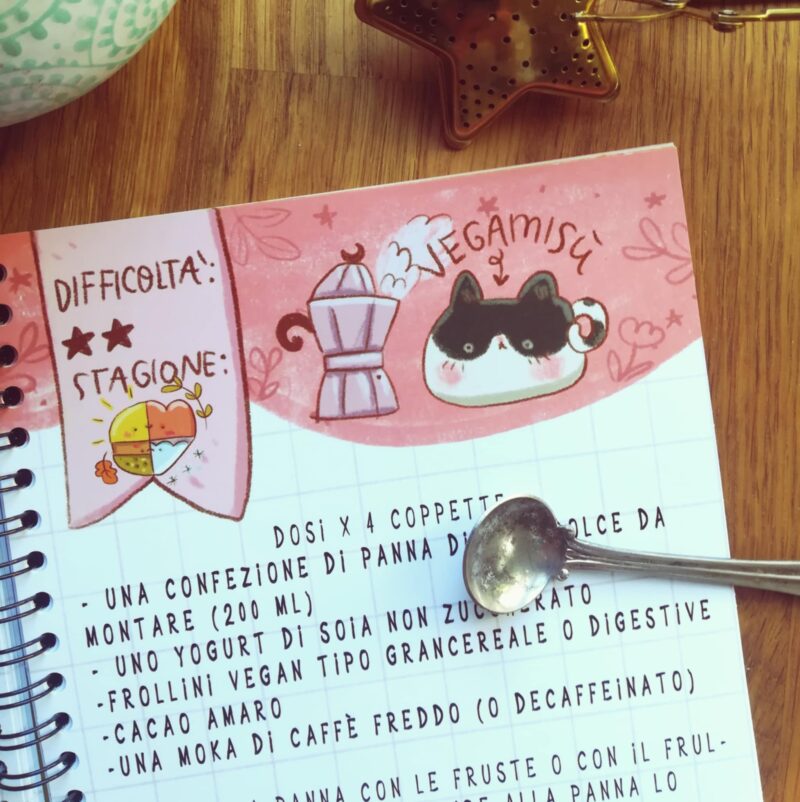 DIFFICOLTÀ:
STAGIONE:
VEGAMISÙ
DOSI X 4 COPPETTE
- UNA CONFEZIONE DI PANNA DOLCE DA
MONTARE (200 ML)
- UNO YOGURT DI SOIA NON ZUCCHERATO
-FROLLINI VEGAN TIPO GRANCEREALE O DIGESTIVE
-CACAO AMARO
-UNA MOKA DI CAFFÈ FREDDO (O DECAFFEINATO)
PANNA CON LE FRUSTE O CON IL FRUL-
ALLA PANNA LO